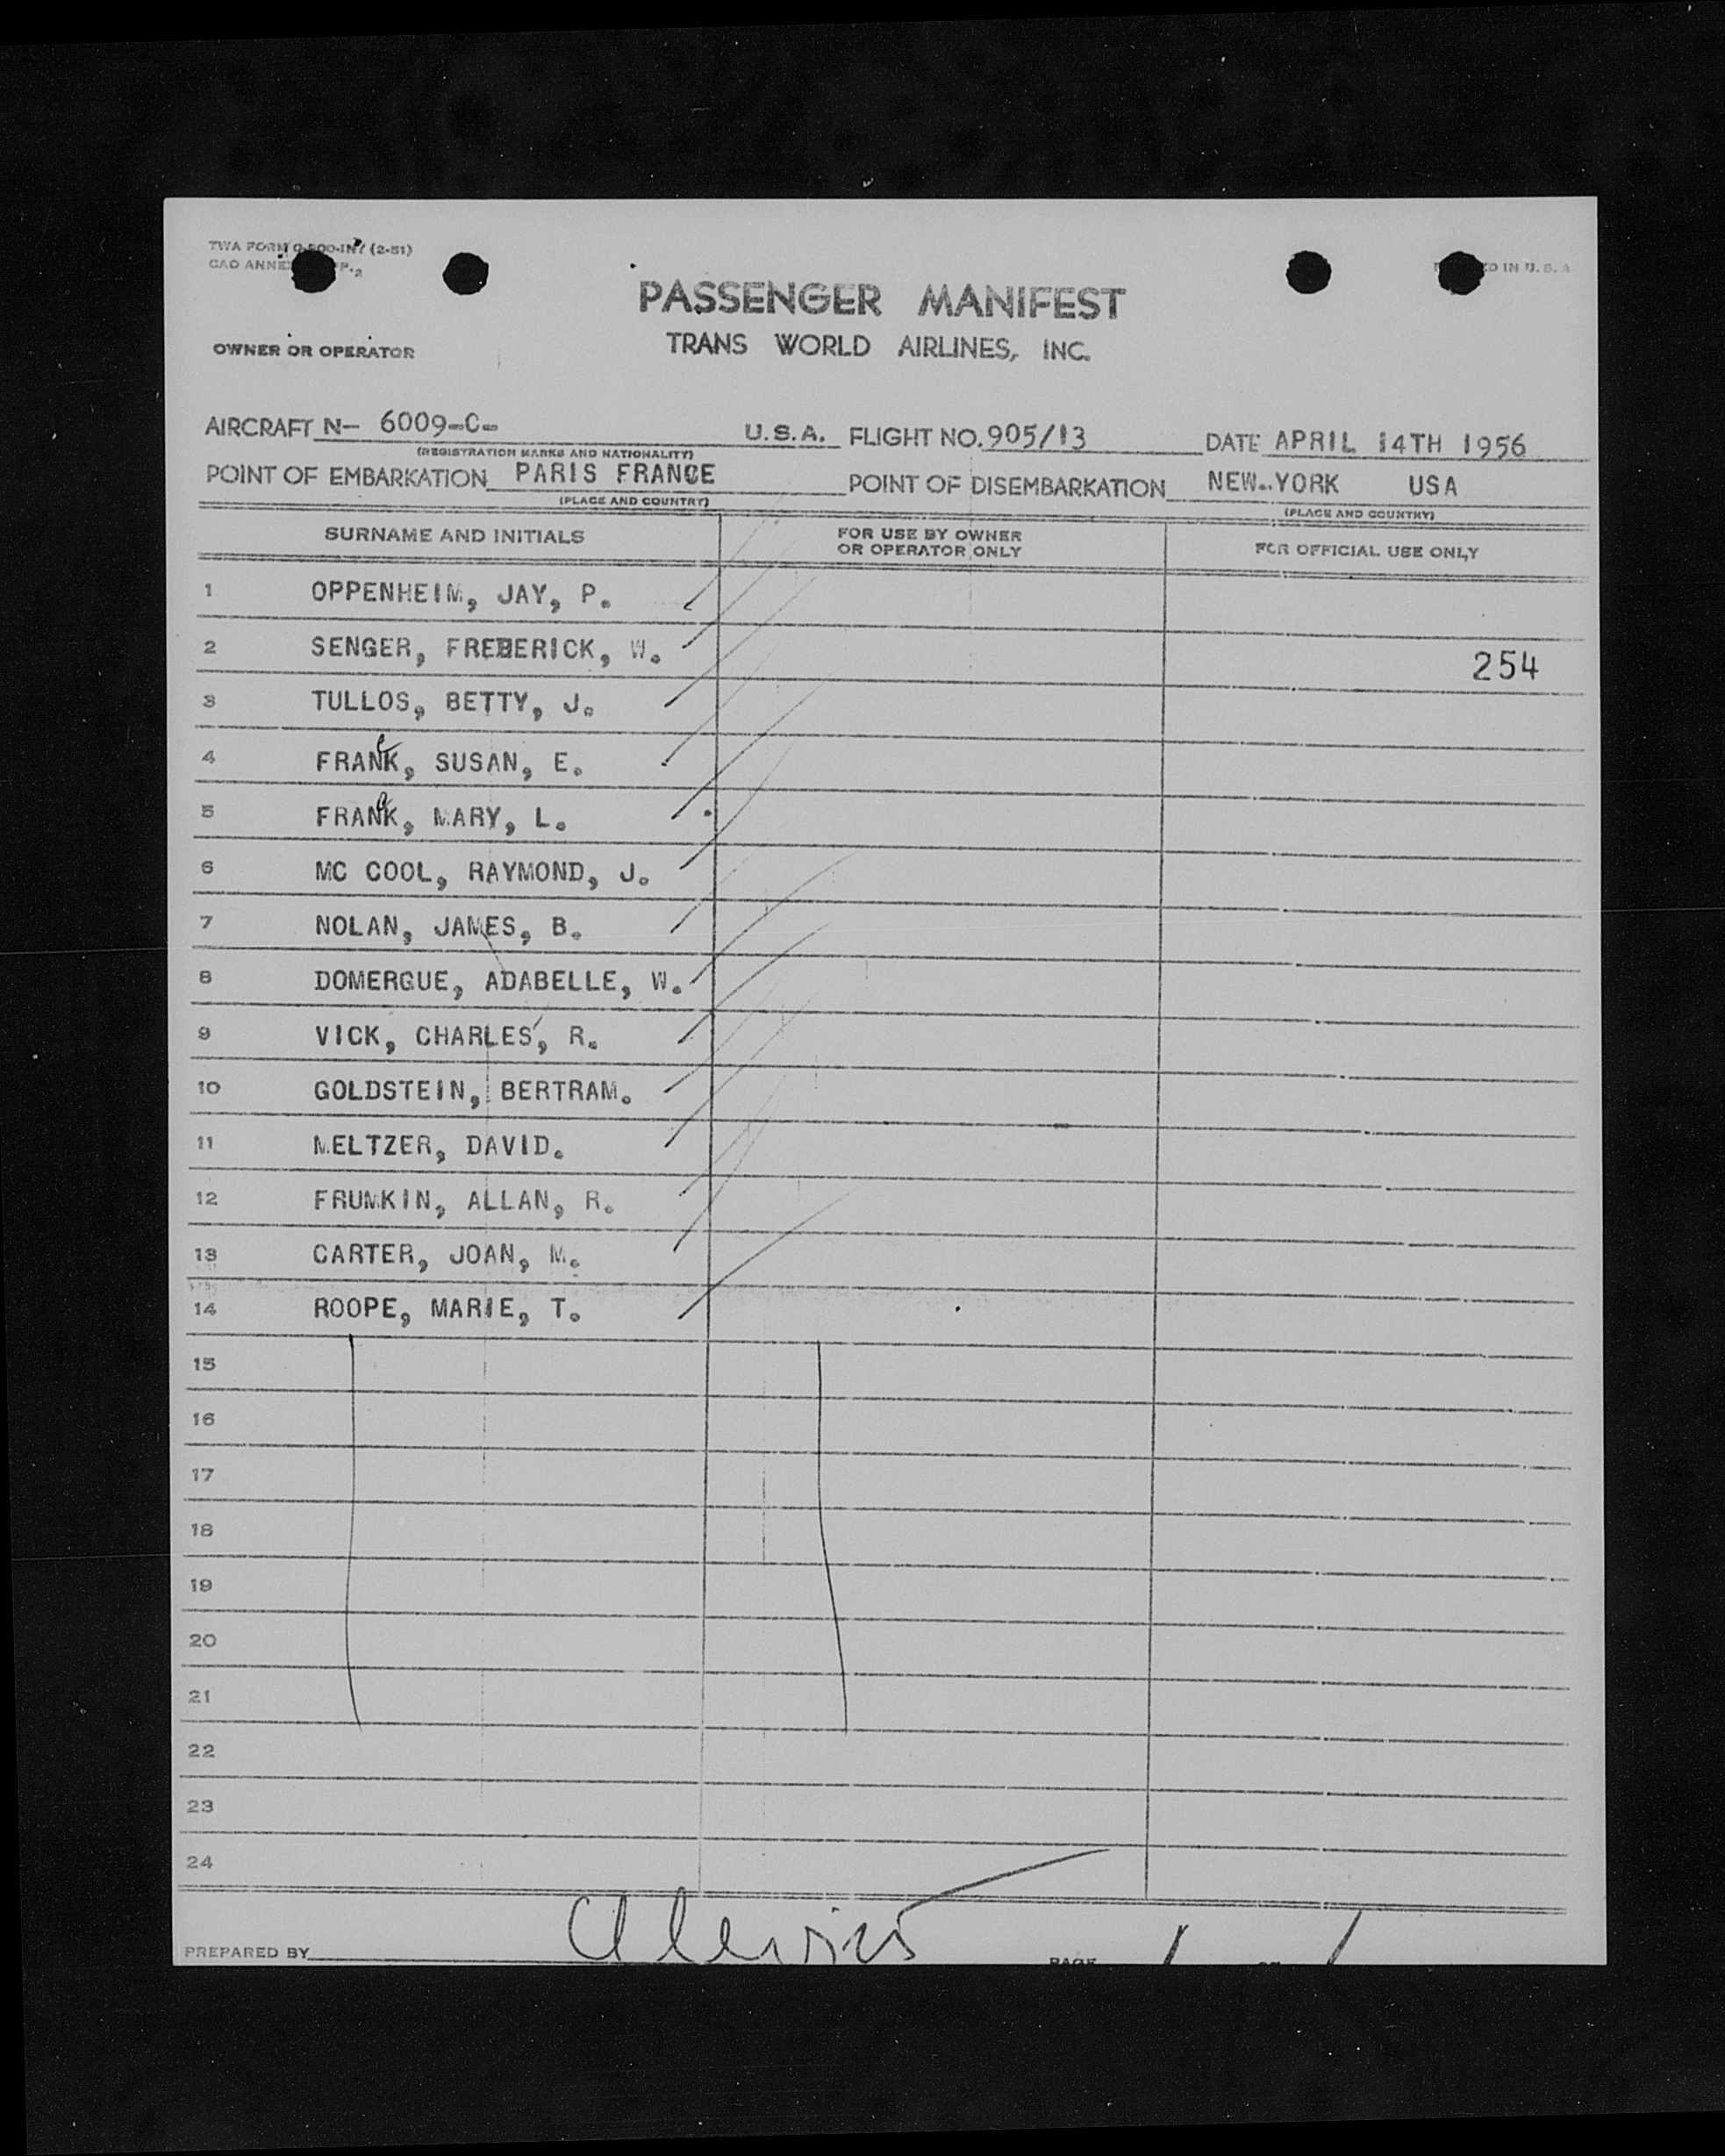 TWA FORM O-500-INT (2-51)
CAO ANNEX
PASSENGER MANIFEST
OWNER OR OPERATOR
TRANS WORLD AIRLINES, INC.
AIRCRAFT N- 6009-C- U.S.A. FLIGHT NO. 905/13 DATE APRIL 14TH 1956
(REGISTRATION MARKS AND NATIONALITY)
POINT OF EMBARKATION PARIS FRANCE POINT OF DISEMBARKATION NEW-YORK USA
(PLACE AND COUNTRY) (PLACE AND COUNTRY)
SURNAME AND INITIALS FOR USE BY OWNER OR OPERATOR ONLY FOR OFFICIAL USE ONLY
1 OPPENHEIM, JAY, P.
2 SENGER, FREDERICK, W. 254
3 TULLOS, BETTY, J.
4 FRANK, SUSAN, E.
5 FRANK, MARY, L.
6 MC COOL, RAYMOND, J.
7 NOLAN, JAMES, B.
8 DOMERGUE, ADABELLE, W.
9 VICK, CHARLES, R.
10 GOLDSTEIN, BERTRAM.
11 MELTZER, DAVID.
12 FRUMKIN, ALLAN, R.
13 CARTER, JOAN, M.
14 ROOPE, MARIE, T.
15
16
17
18
19
20
21
22
23
24
PREPARED BY PAGE 1 OF 1